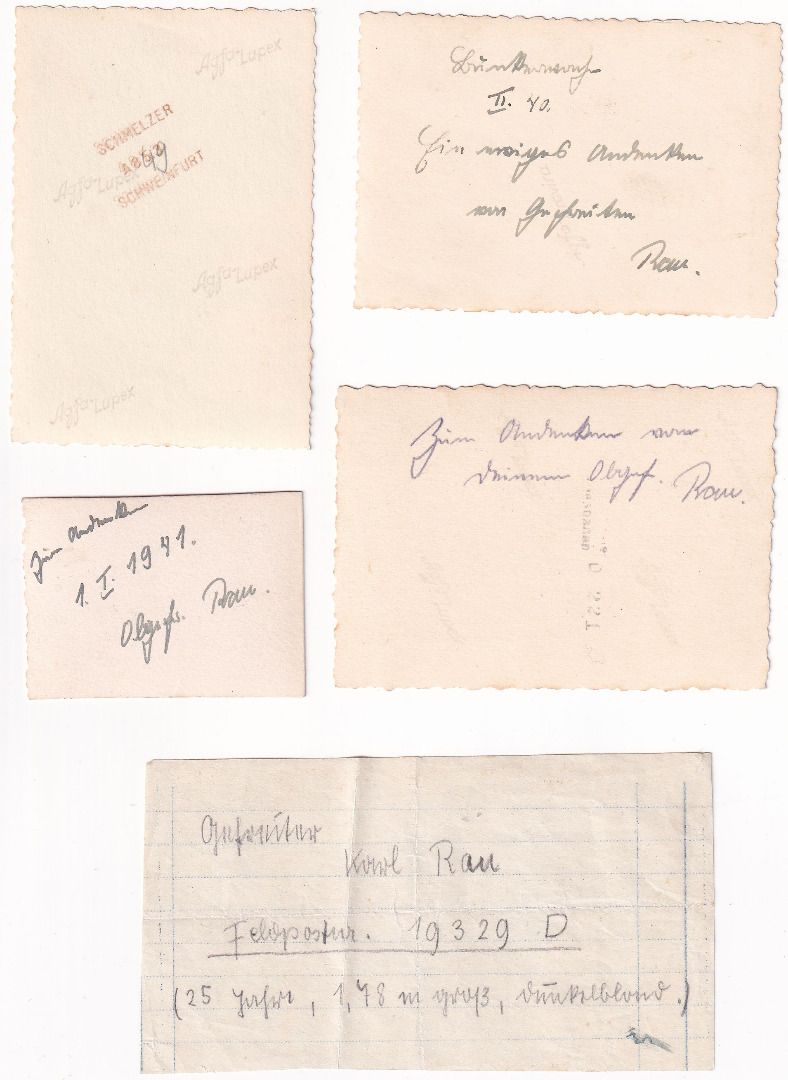 Agfa-Lupex
SCHMELZER
SCHWEINFURT
Agfa-Lupex
Agfa-Lupex
Agfa-Lupex
Bunkerwache
II. 40.
Ein ewiges Andenken
von Gefreiten
Rau.
Zum Andenken
1. I. 1941.
Obgefr. Rau.
Zum Andenken von
deinem Obgef. Rau.
Gefreiter
Karl Rau
Feldpostnr. 19329 D
(25 Jahre, 1,78 m groß, dunkelblond.)